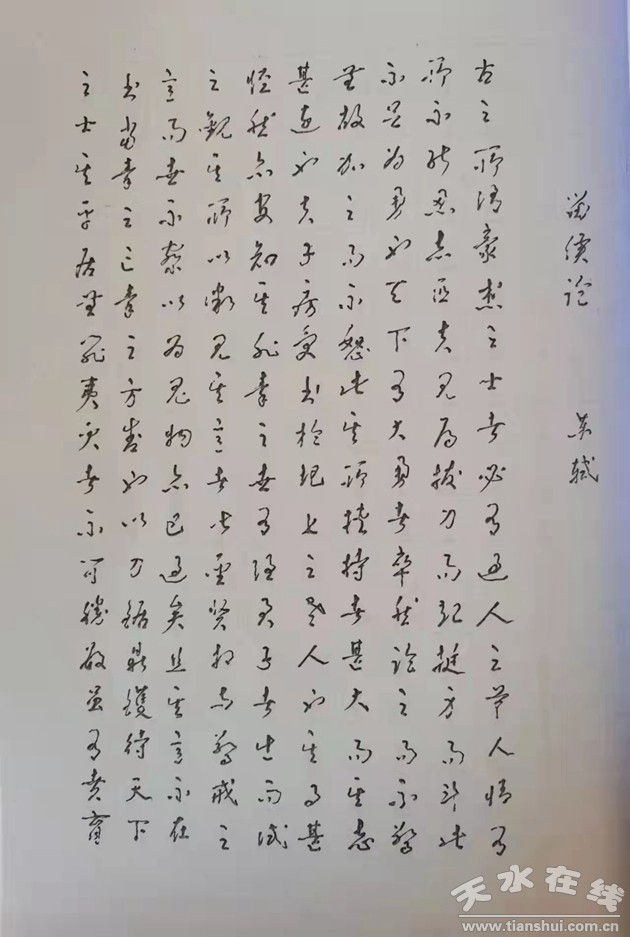 留侯論 蘇軾
古之所謂豪傑之士者必有過人之節人情有
所不能忍者匹夫見辱拔刀而起挺身而鬥此
不足為勇也天下有大勇者卒然臨之而不驚
無故加之而不怒此其所挾持者甚大而其志
甚遠也夫子房受書於圯上之老人也其事甚
怪然亦安知其非秦之世有隱君子者出而試
之觀其所以微見其意者皆聖賢相與警戒之
意而世不察以為鬼物亦已過矣且其意不在
書當韓之亡秦之方盛也以刀鋸鼎鑊待天下
之士其平居無罪夷滅者不可勝數雖有賁育
天水在线
www.tianshui.com.cn